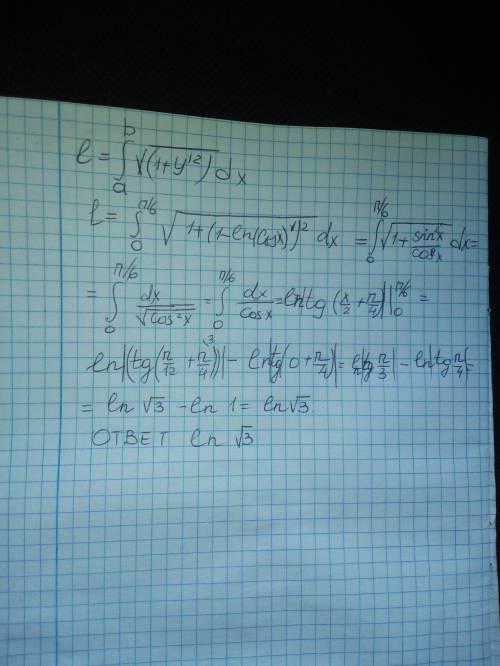 l = ∫ₐᵇ √(1+y'²) dx
l = ∫₀^π/6 √1+(1-ln(cosx)')² dx = ∫₀^π/6 √1+ sin²x/cos²x dx =
= ∫₀^π/6 dx/√cos²x = ∫₀^π/6 dx/cosx = ln|tg(x/2+π/4)| |₀^π/6 =
ln|(tg(π/12+π/4))| - ln|tg(0+π/4)| = ln|tg π/3| - ln|tg π/4| =
= ln √3 - ln 1 = ln√3
ОТВЕТ ln √3